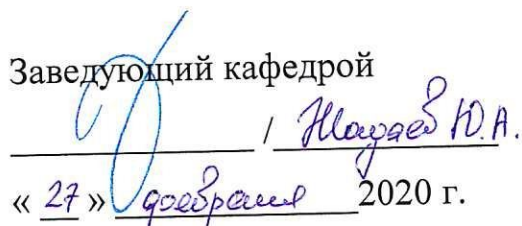 Заведующий кафедрой
/ Жадаев Ю.А.
« 27 » февраля 2020 г.